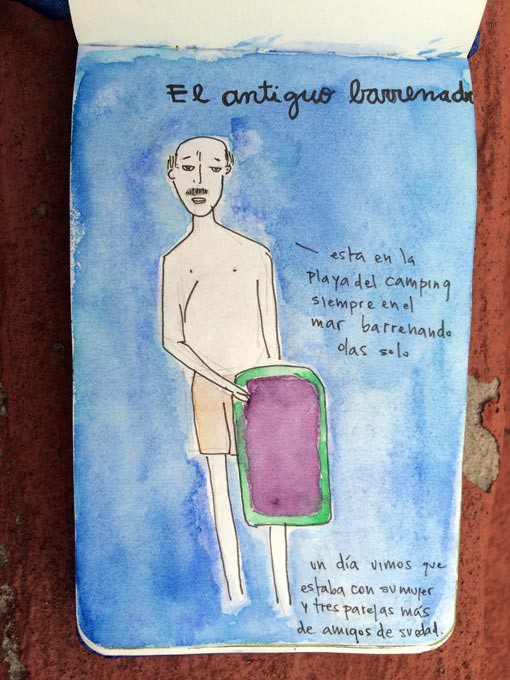 El antiguo barrenador
— esta en la
playa del camping
siempre en el
mar barrenando
olas solo
un día vimos que
estaba con su mujer
y tres parejas más
de amigos de su edad.